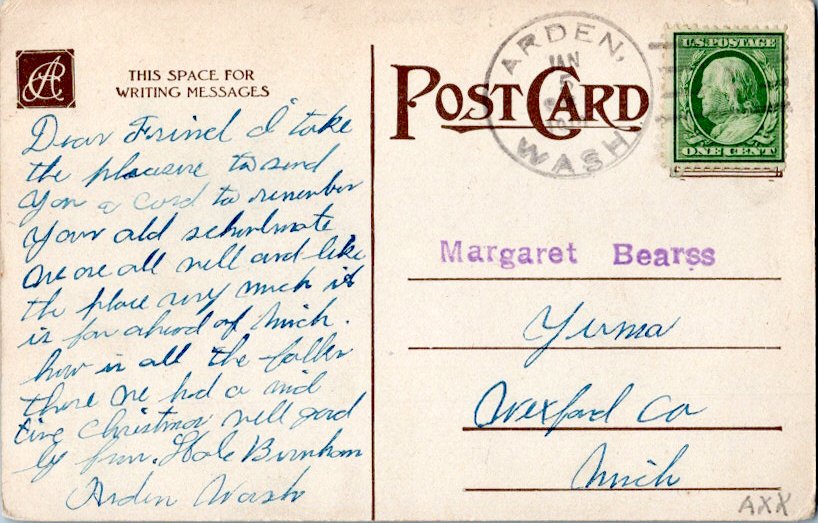 THIS SPACE FOR
WRITING MESSAGES
POST CARD
ARDEN,
JAN
5
WASH
U.S. POSTAGE
ONE CENT
Dear Frined I take
the pleasure to send
you a card to remember
your old schoolmate
we are all well and like
the place very much it
is far ahead of Mich.
how is all the folks
there we had a
Christmas well good
by from. Burnham
Arden Wash
Margaret Bearss
Yuma
Wexford Co
Mich
AXX